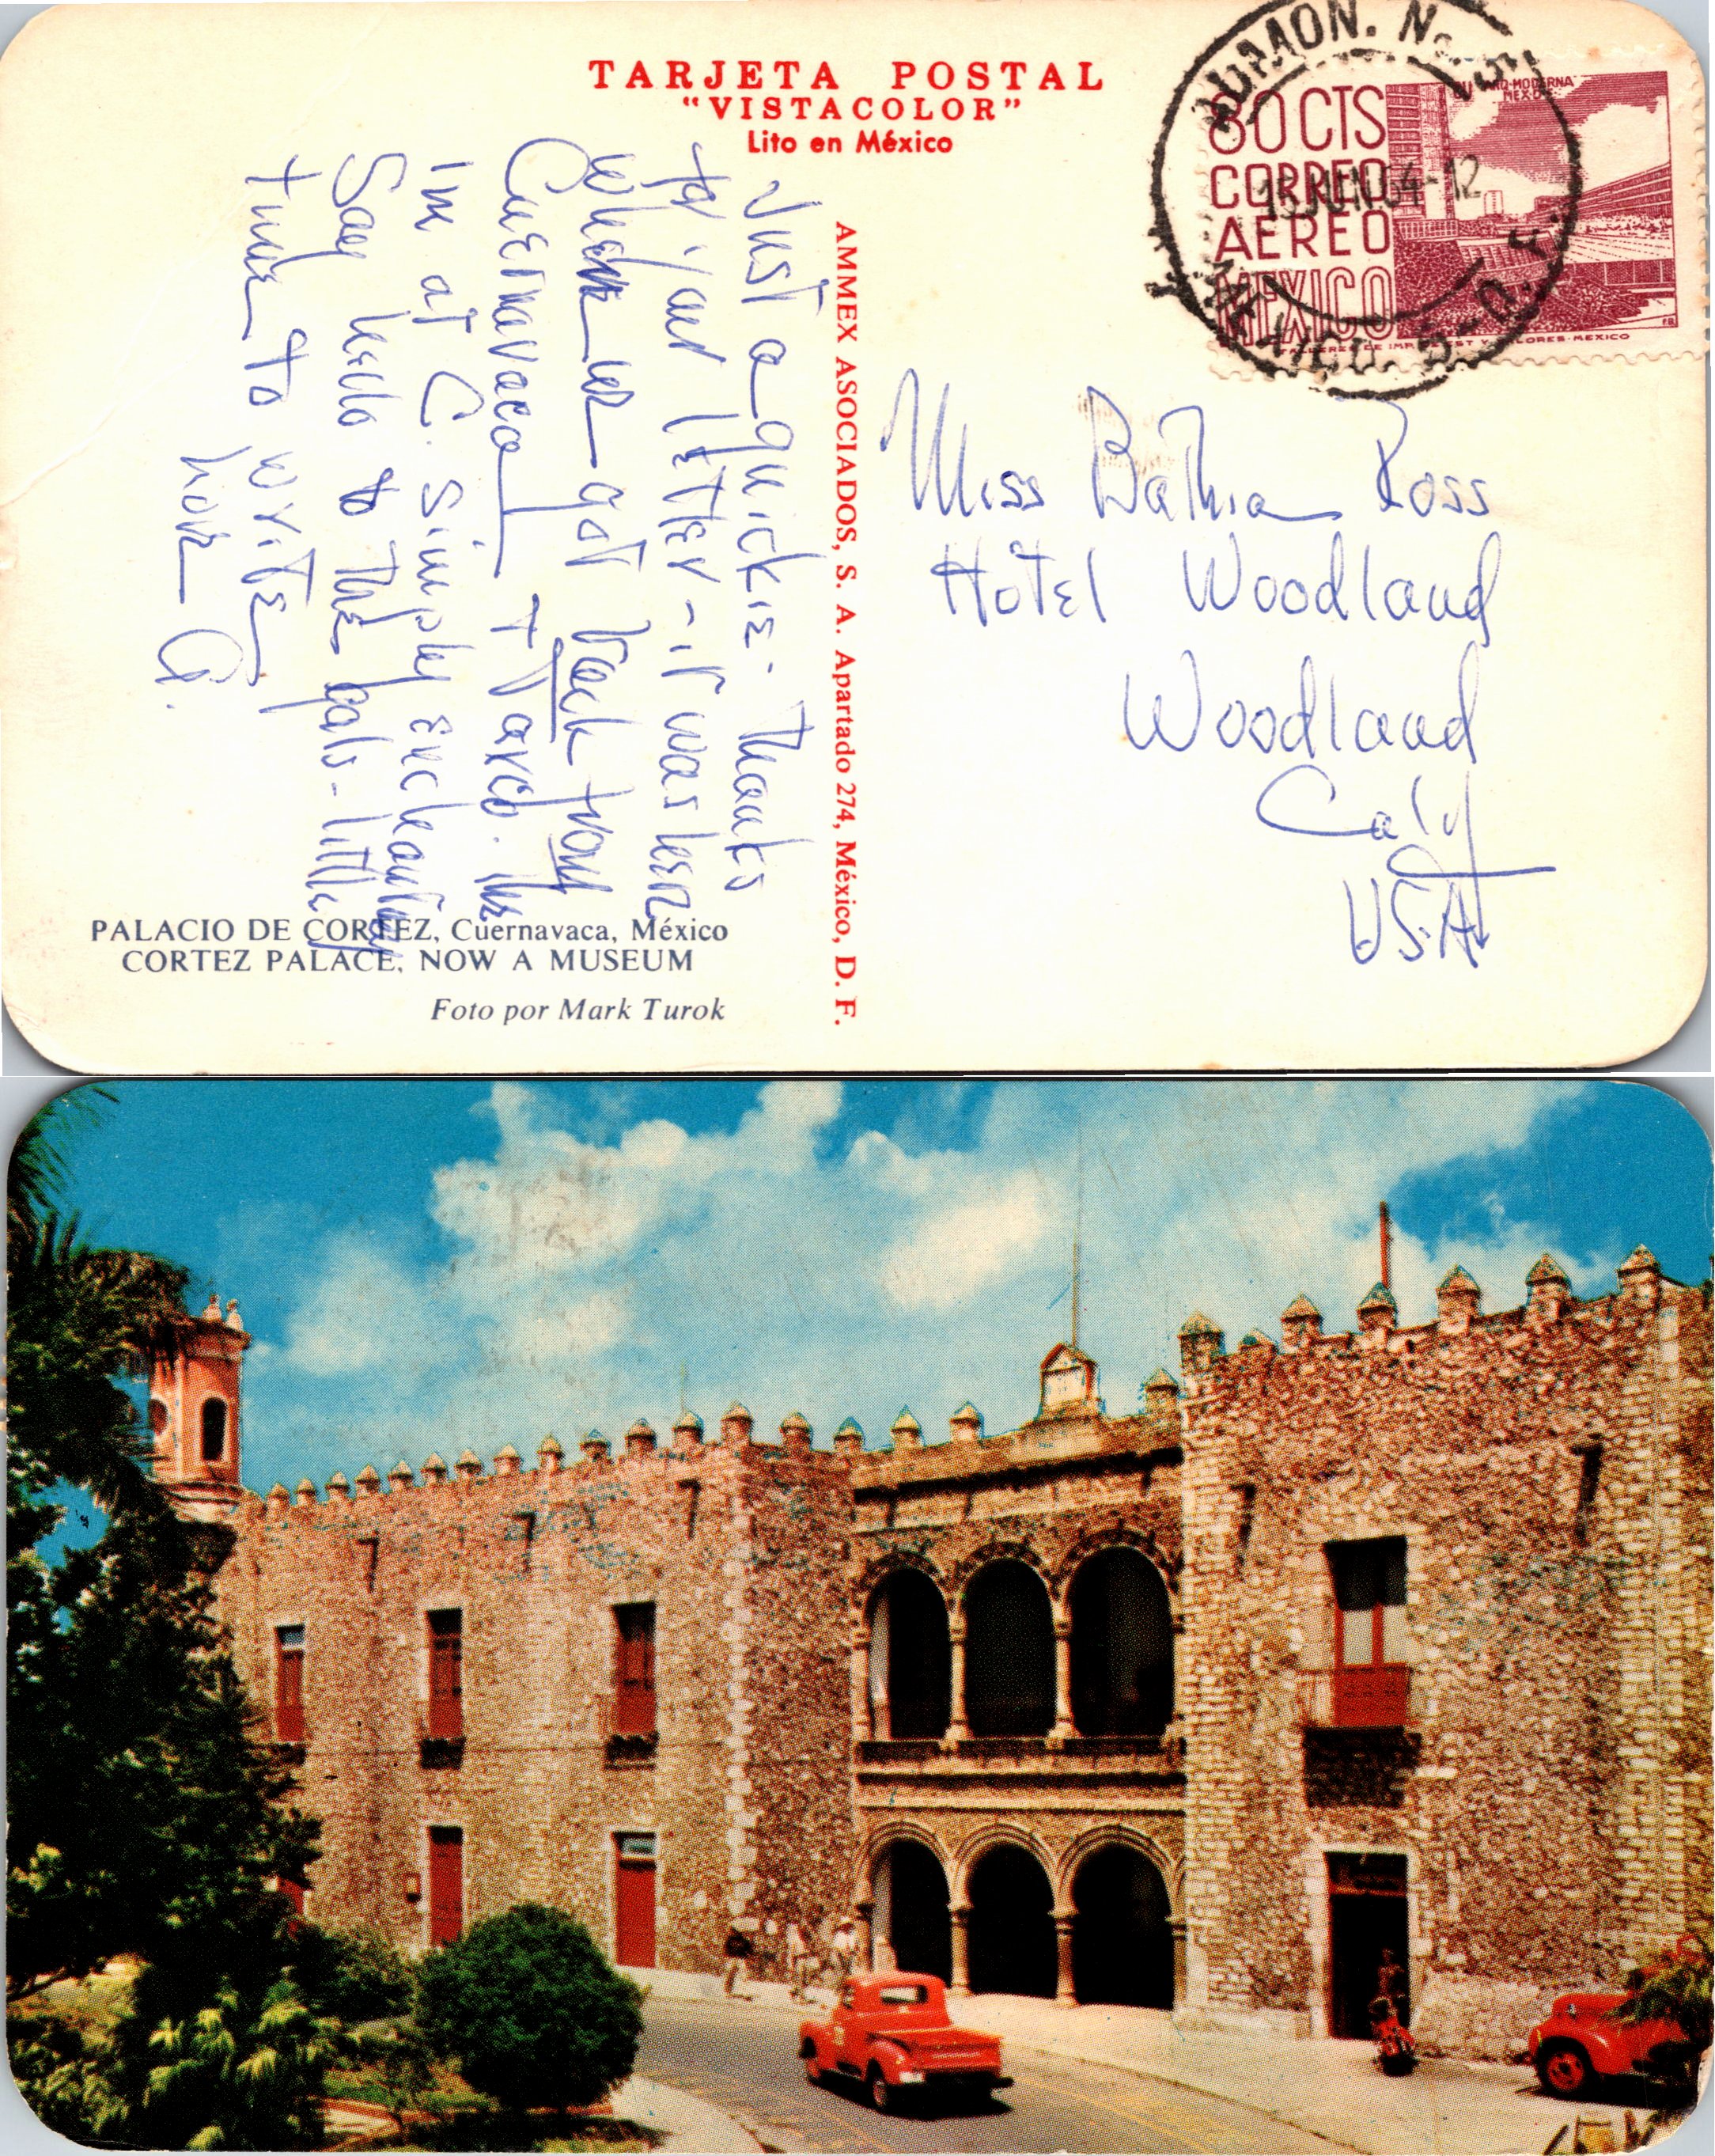 TARJETA POSTAL
"VISTACOLOR"
Lito en México
80 CTS
CORREO
AEREO
MEXICO
MEXICO
15 JUN 64-12
MEXICO D. F.
TALLERES DE IMP. DE EST. Y VALORES-MEXICO
AMMEX ASOCIADOS, S. A. Apartado 274, México, D. F.
Just a quickie. Thanks
for your letter - it was here
when we got back from
Cuernavaca + Taxco.
I'm at C. Simply enchanting
Say hello to the gals - little
time to write
Love G.
Miss Bathia Ross
Hotel Woodland
Woodland
Calif
USA
PALACIO DE CORTEZ, Cuernavaca, México
CORTEZ PALACE, NOW A MUSEUM
Foto por Mark Turok